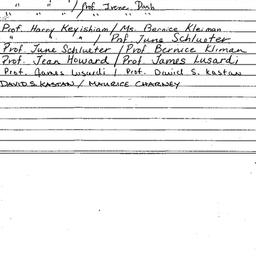 " " " / Prof. Irene Dash
" " " " " "
Prof. Harry Keyishiam / Ms. Bernice Kleiman
" " " / Prof. June Schlueter
Prof. June Schlueter / Prof Bernice Kliman
Prof. Jean Howard / Prof James Lusardi
Prof. James Lusardi / Prof. David S. Kastan
DAVID S. KASTAN / MAURICE CHARNEY